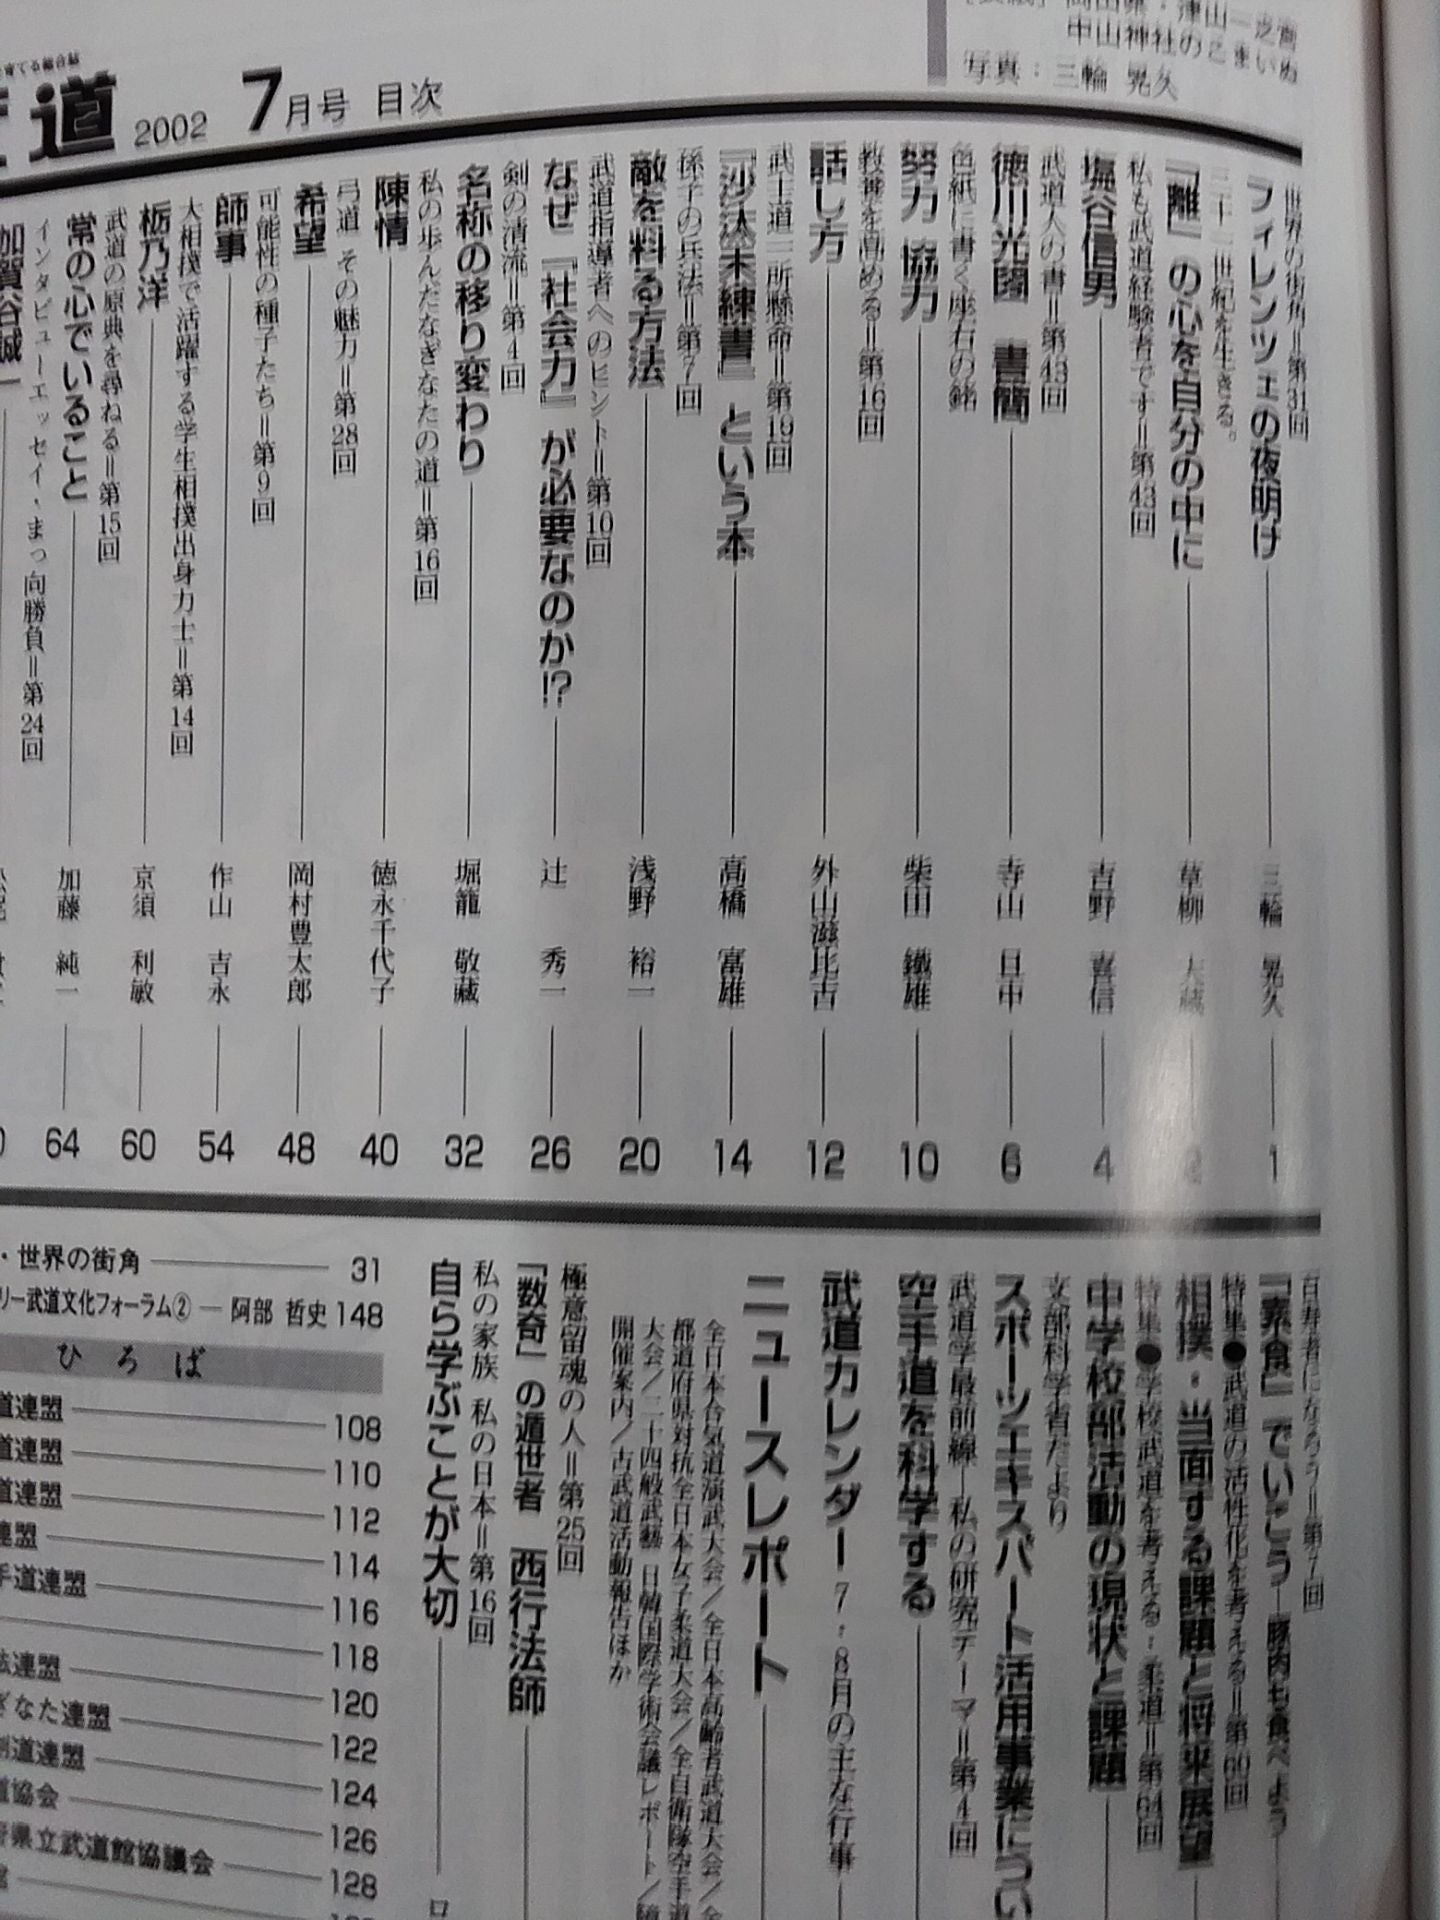 中山神社のこまいぬ
写真:三輪 晃久
道 2002 7月号 目次
世界の街角=第31回
フィレンツェの夜明け 三輪 晃久 1
二十一世紀を生きる。
『離』の心を自分の中に 草柳 大蔵
私も武道経験者です=第43回
塩谷信男 吉野 喜信 4
武道人の書=第43回
徳川光圀 書簡 寺山 旦中 6
色紙に書く座右の銘
努力 協力 柴田 鐵雄 10
教養を高める=第16回
話し方 外山滋比古 12
武士道一所懸命=第19回
『沙汰未練書』という本 高橋 富雄 14
孫子の兵法=第7回
敵を料る方法 浅野 裕一 20
武道指導者へのヒント=第10回
なぜ『社会力』が必要なのか!? 辻 秀一 26
剣の清流=第4回
名称の移り変わり 堀籠 敬蔵 32
私の歩んだなぎなたの道=第16回
陳情 徳永千代子 40
弓道 その魅力=第28回
希望 岡村豊太郎 48
可能性の種子たち=第9回
師事 作山 吉永 54
大相撲で活躍する学生相撲出身力士=第14回
栃乃洋 京須 利敏 60
武道の原典を尋ねる=第15回
常の心でいること 加藤 純一 64
インタビューエッセイ、まっ向勝負=第24回
加賀谷誠一
百寿者になろう=第7回
「素食」でいこう―豚肉も食べよう
特集●武道の活性化を考える=第60回
相撲・当面する課題と将来展望
特集●学校武道を考える・柔道=第64回
中学校部活動の現状と課題
文部科学省だより
スポーツエキスパート活用事業につい
武道学最前線―私の研究テーマ=第4回
空手道を科学する
武道カレンダー 7・8月の主な行事
ニュースレポート
全日本合気道演武大会/全日本高齢者武道大会/全
都道府県対抗全日本女子柔道大会/全自衛隊空手道
大会/二十四般武藝 日韓国際学術会議レポート/
開催案内/古武道活動報告ほか
極意留魂の人=第25回
「数奇」の遁世者 西行法師
私の家族 私の日本=第16回
自ら学ぶことが大切
・世界の街角 31
リー武道文化フォーラム② 阿部 哲史 148
ひろば
道連盟 108
道連盟 110
道連盟 112
連盟 114
手道連盟 116
118
法連盟 120
ぎなた連盟 122
剣道連盟 124
道協会 126
府県立武道館協議会 128